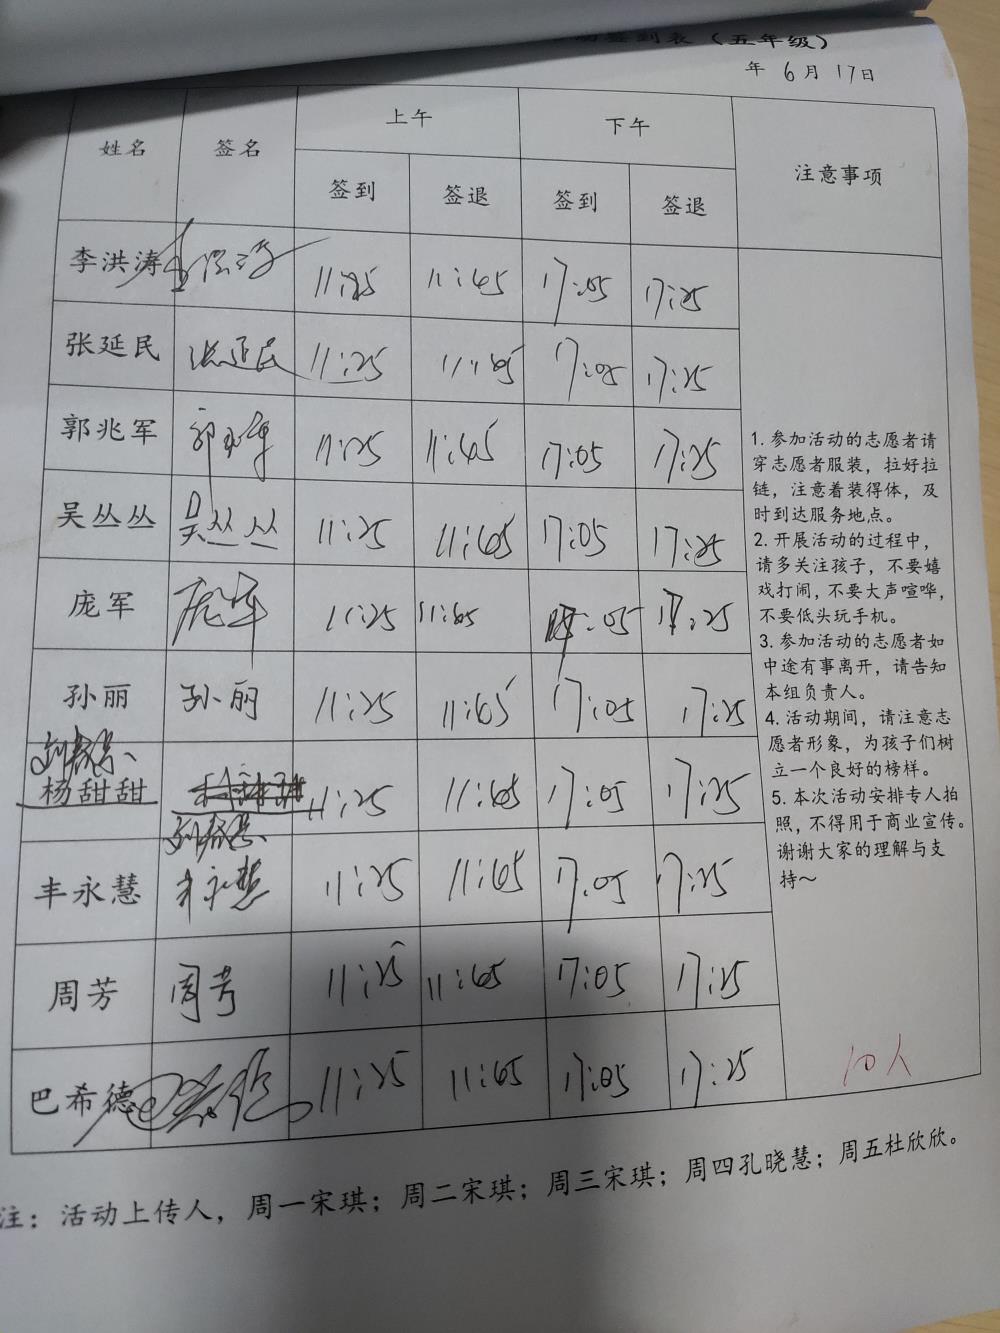 签到表（五年级）
年 6月17日
姓名 签名 上午 下午 注意事项
签到 签退 签到 签退
李洪涛 11:25 11:45 17:05 17:25
张延民 张延民 11:25 11:45 17:05 17:25
郭兆军 郭兆军 11:25 11:45 17:05 17:25
吴丛丛 吴丛丛 11:25 11:45 17:05 17:25
庞军 庞军 11:25 11:45 17:05 17:25
孙丽 孙丽 11:25 11:45 17:05 17:25
杨甜甜 11:25 11:45 17:05 17:25
丰永慧 丰永慧 11:25 11:45 17:05 17:25
周芳 周芳 11:25 11:45 17:05 17:25
巴希德 11:25 11:45 17:05 17:25
1. 参加活动的志愿者请
穿志愿者服装，拉好拉
链，注意着装得体，及
时到达服务地点。
2. 开展活动的过程中，
请多关注孩子，不要嬉
戏打闹，不要大声喧哗，
不要低头玩手机。
3. 参加活动的志愿者如
中途有事离开，请告知
本组负责人。
4. 活动期间，请注意志
愿者形象，为孩子们树
立一个良好的榜样。
5. 本次活动安排专人拍
照，不得用于商业宣传。
谢谢大家的理解与支
持～
10人
注：活动上传人，周一宋琪；周二宋琪；周三宋琪；周四孔晓慧；周五杜欣欣。